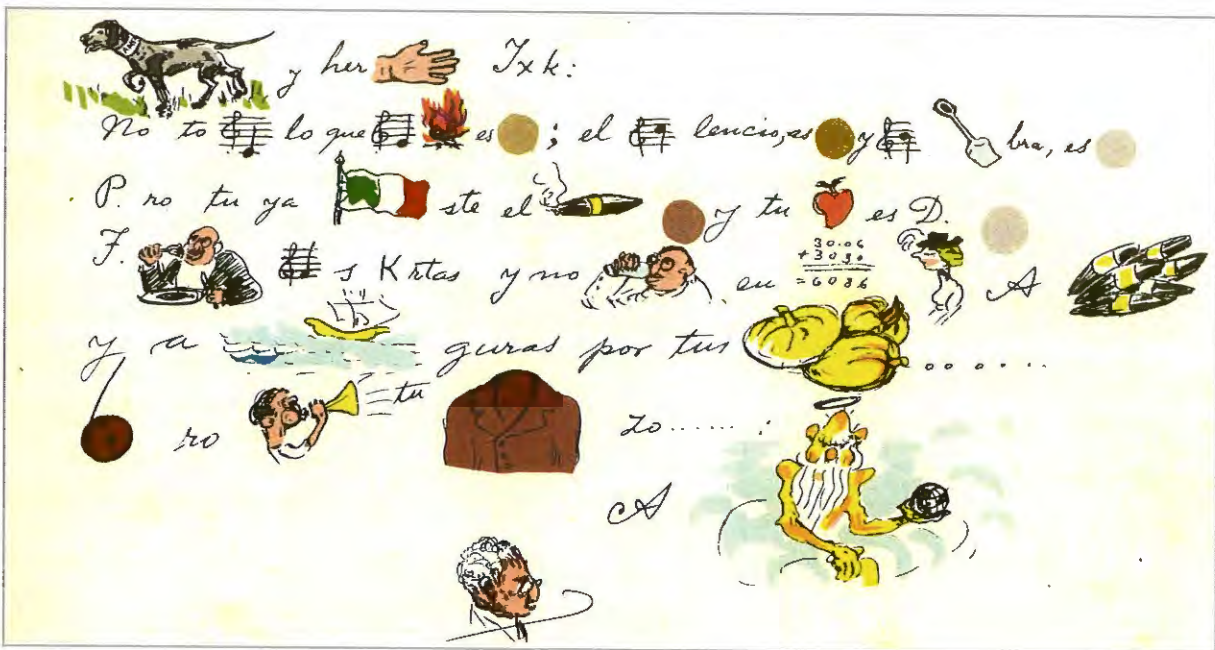 y her Txk:
No to lo que es ; el lencio, es y bra, es
P. ro tu ya ste el y tu es D.
F. s Krtas y no en 30.06 +3030 =6036 A
y a guras por tus ........
ro tu zo...... :
A